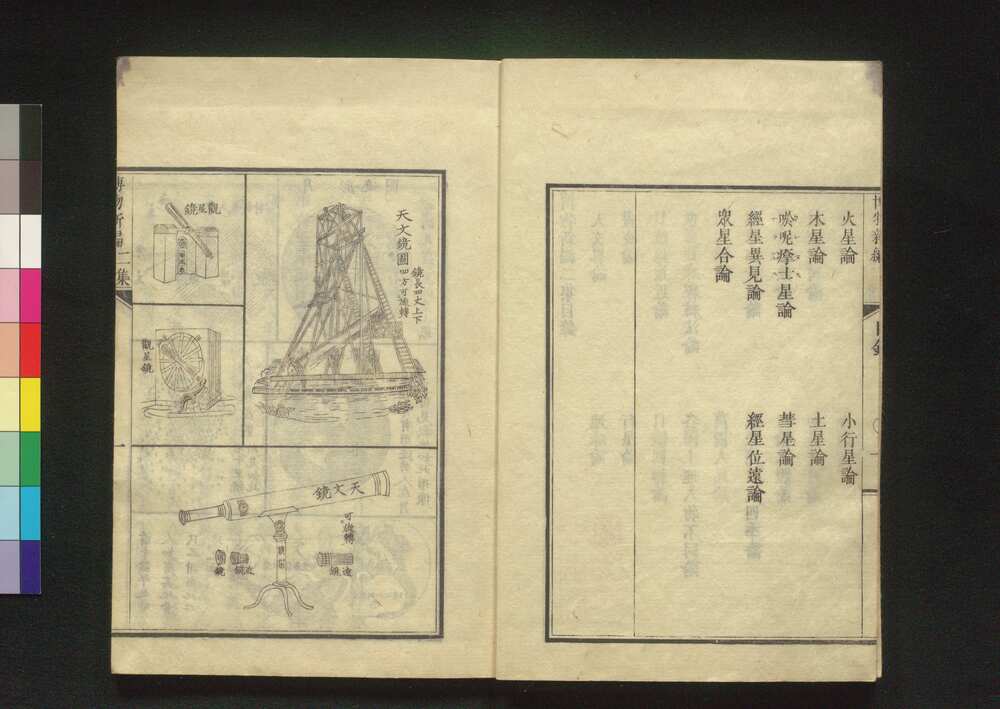 火星論
小行星論
木星論
土星論
唉呢摩士星論
彗星論
經星異見論
經星位遠論
眾星合論
天文鏡圖
鏡長四丈上下
四方可旋轉
觀星鏡
觀星鏡
博物新編二集
一
天文鏡
可旋轉
鏡
近鏡
遠